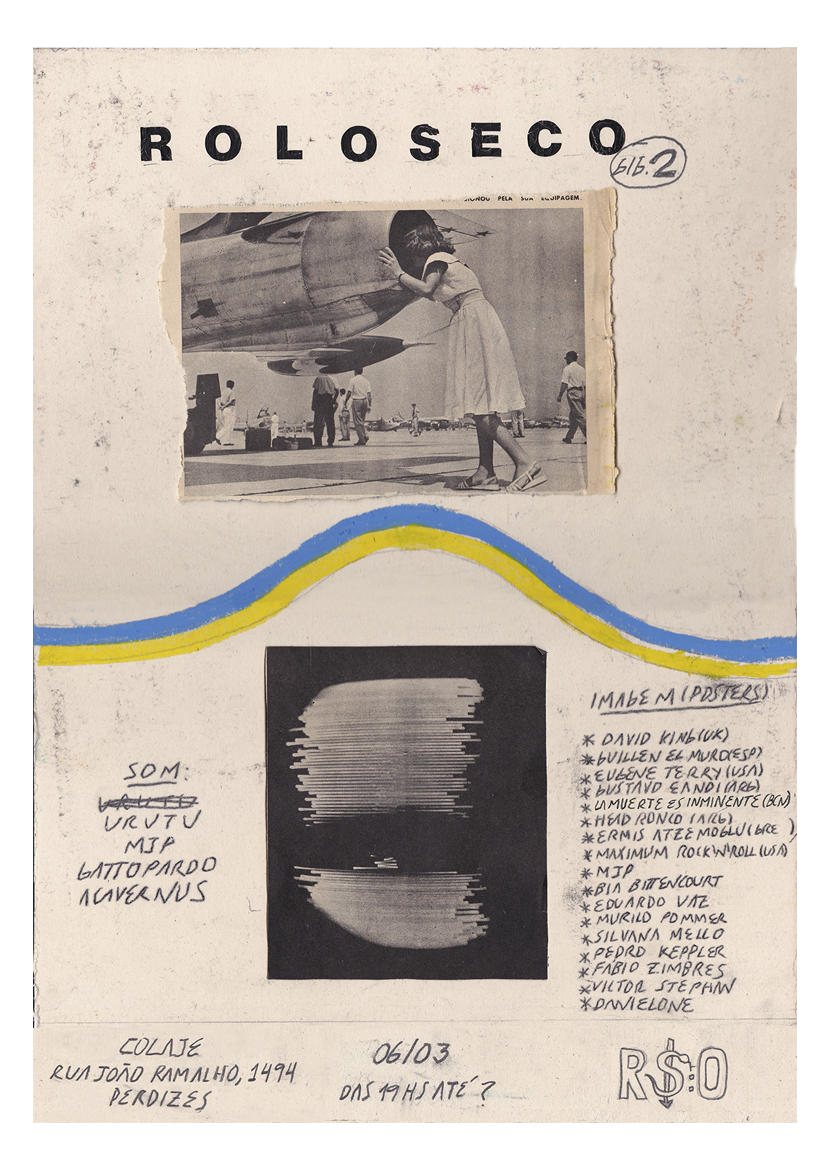 ROLOSECO
GIG.2
PELA SUA EQUIPAGEM.
SOM:
URUTU
URUTU
MJP
GATTOPARDO
ACAVERNUS
IMAGEM (POSTERS)
* DAVID KING (UK)
* GUILLEN EL MURO (ESP)
* EUGENE TERRY (USA)
* GUSTAVO EANDI (ARG)
* LA MUERTE ES INMINENTE (BCN)
* HEAD RONCO (ARG)
* ERMIS ATZEMOGLU (GRE )
* MAXIMUM ROCK'N'ROLL (USA)
* MJP
* BIA BITTENCOURT
* EDUARDO VAZ
* MURILO POMMER
* SILVANA MELLO
* PEDRO KEPPLER
* FABIO ZIMBRES
* VICTOR STEPHAN
* DANIELONE
COLAJE
RUA JOÃO RAMALHO, 1494
PERDIZES
06/03
DAS 19HS ATÉ ?
R$:O